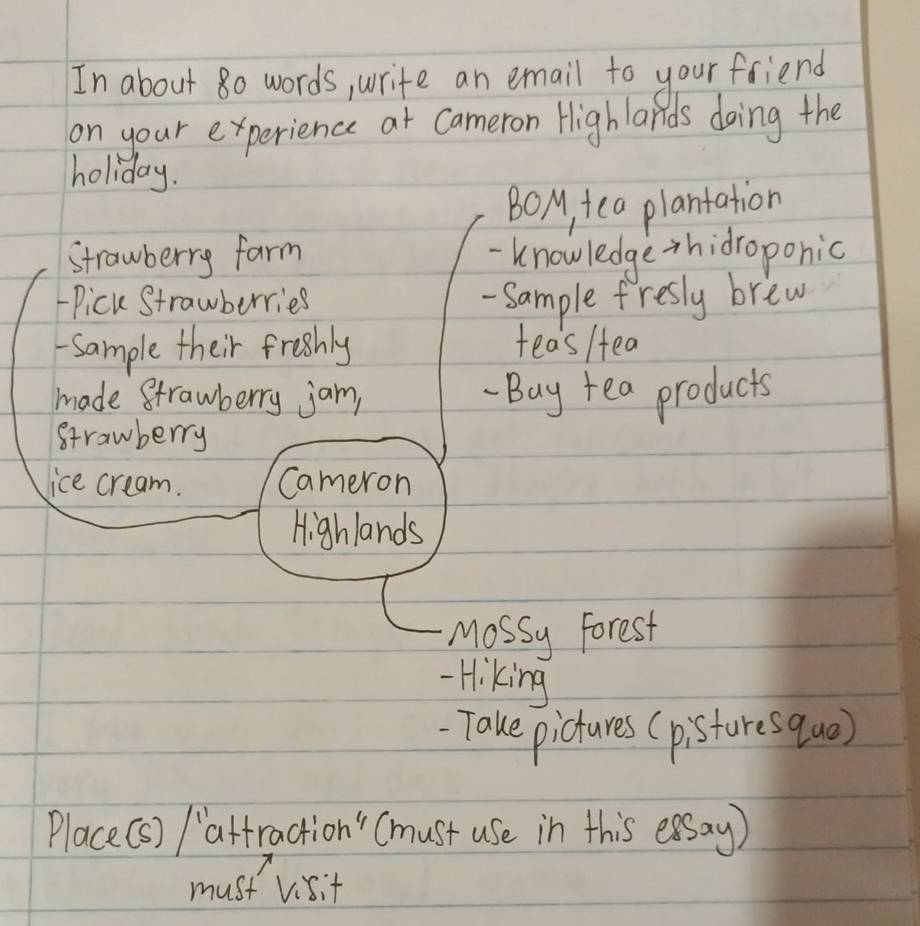 In about 80 words, write an email to your friend
on your experience at Cameron Highlands doing the
holiday.
Strawberry farm
-Pick Strawberries
-Sample their freshly
made Strawberry jam,
Strawberry
ice cream.
BOM, tea plantation
-knowledge→hidroponic
-Sample fresly brew
teas/tea
-Buy tea products
Cameron
Highlands
Mossy Forest
-Hiking
-Take pictures (pisturesque)
Place(s) /"attraction" (must use in this essay)
must visit